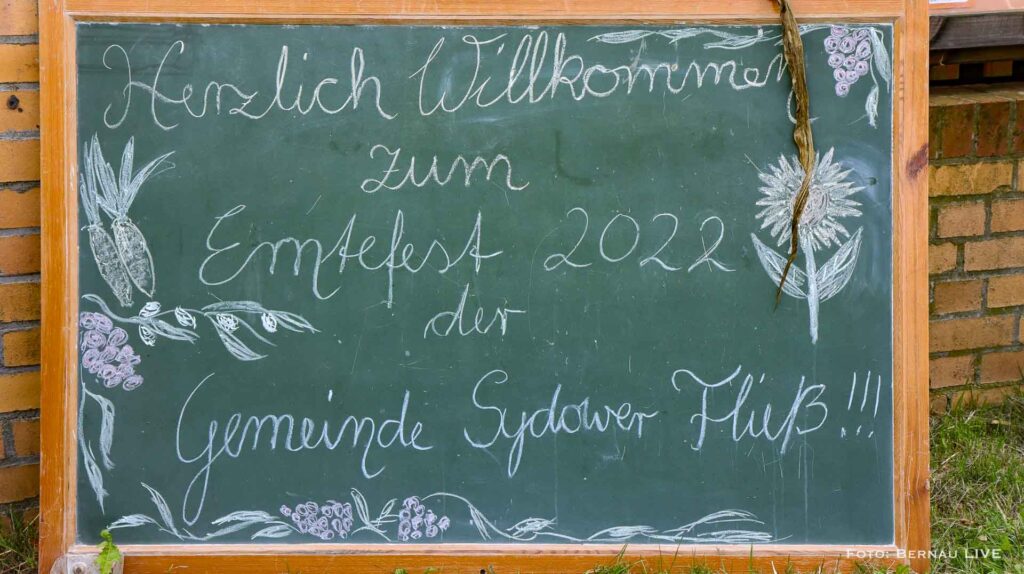 Herzlich Willkommen
zum
Erntefest 2022
der
Gemeinde Sydower Fließ!!!
Foto: Bernau LIVE